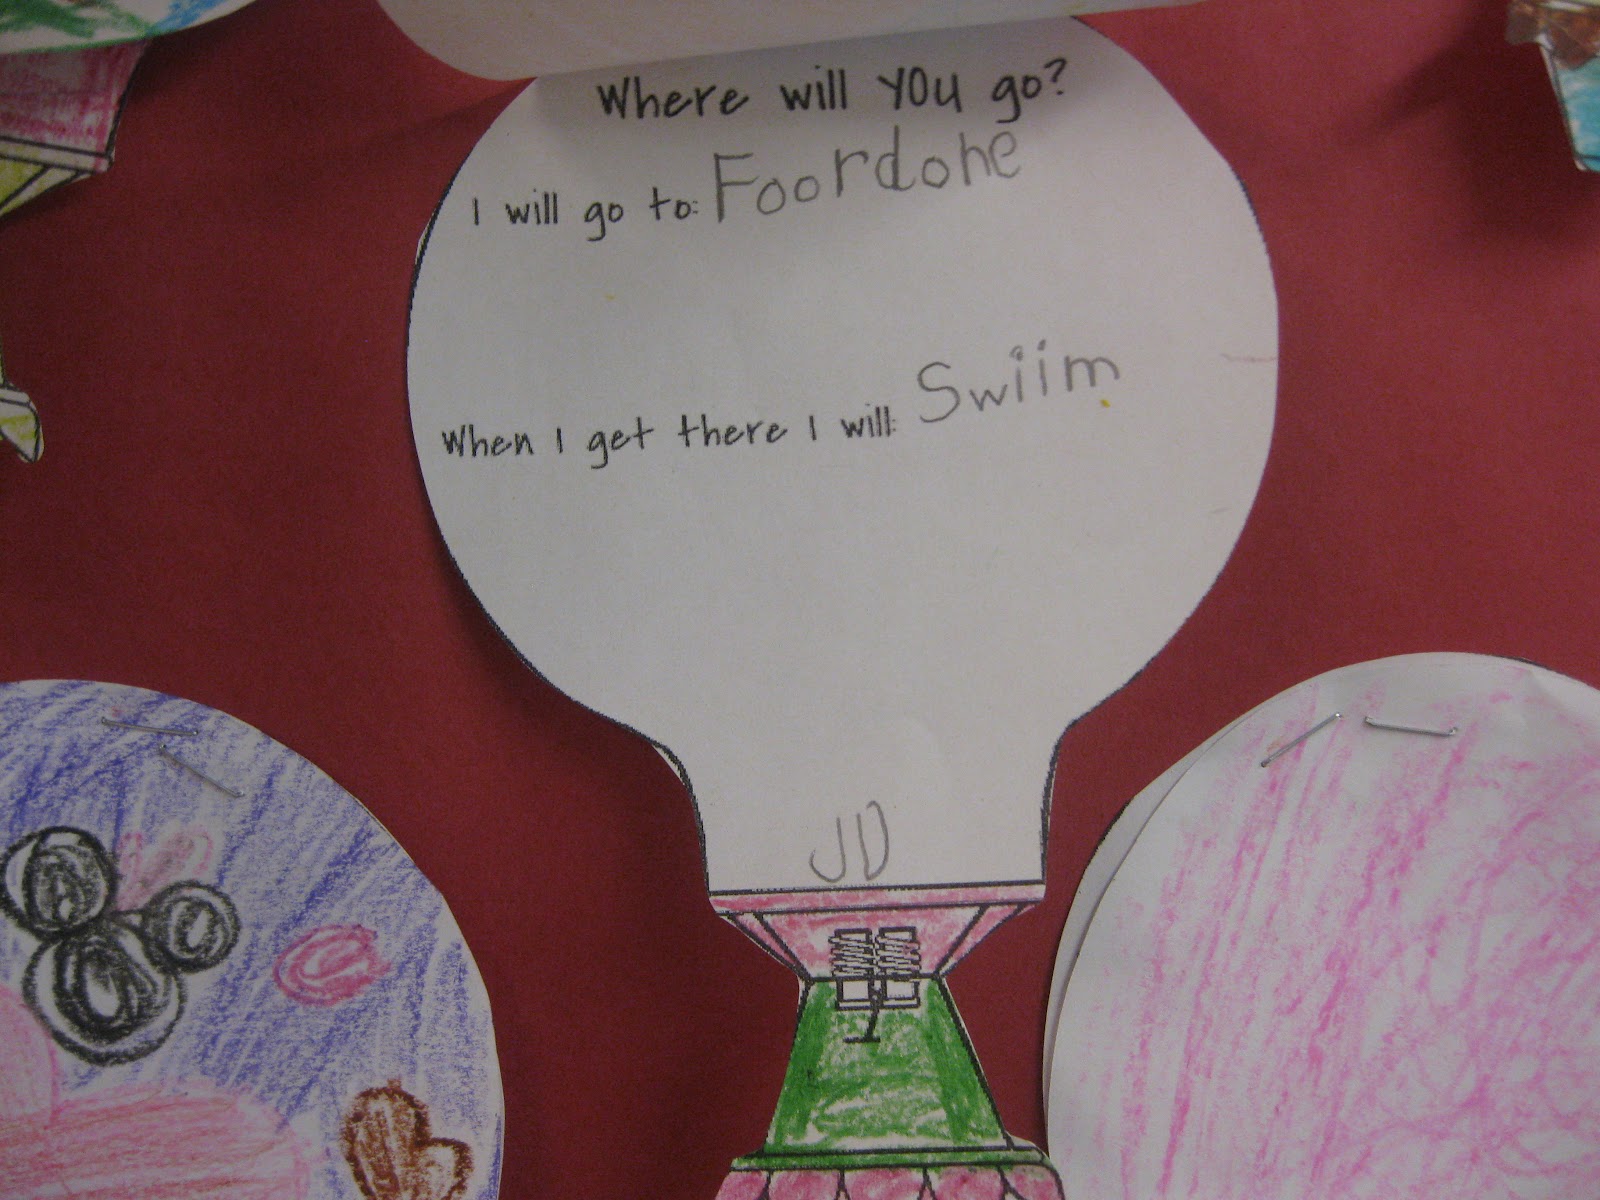 Where will YOU go?
I will go to: Foordohe
When I get there I will: Swiim
JD